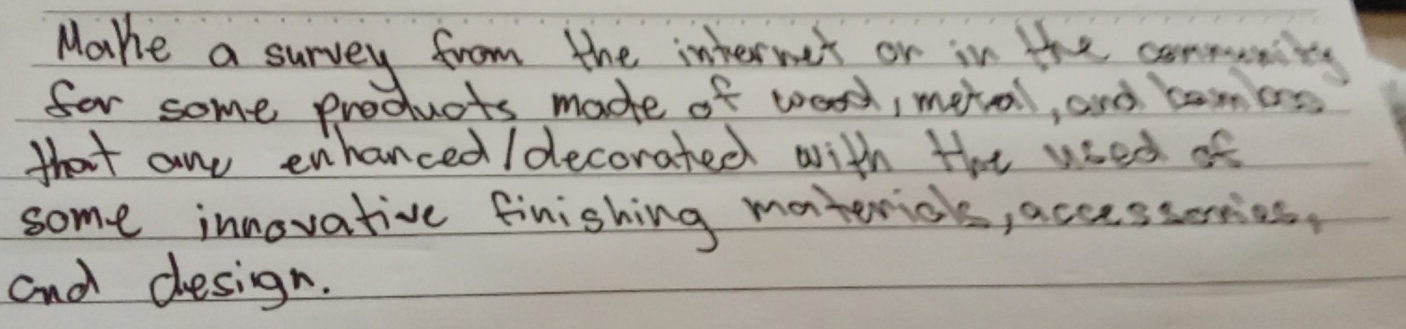 Make a survey from the internet or in the community
for some products made of wood, metal, and bamboo
that are enhanced/decorated with the used of
some innovative finishing materials, accessories,
and design.